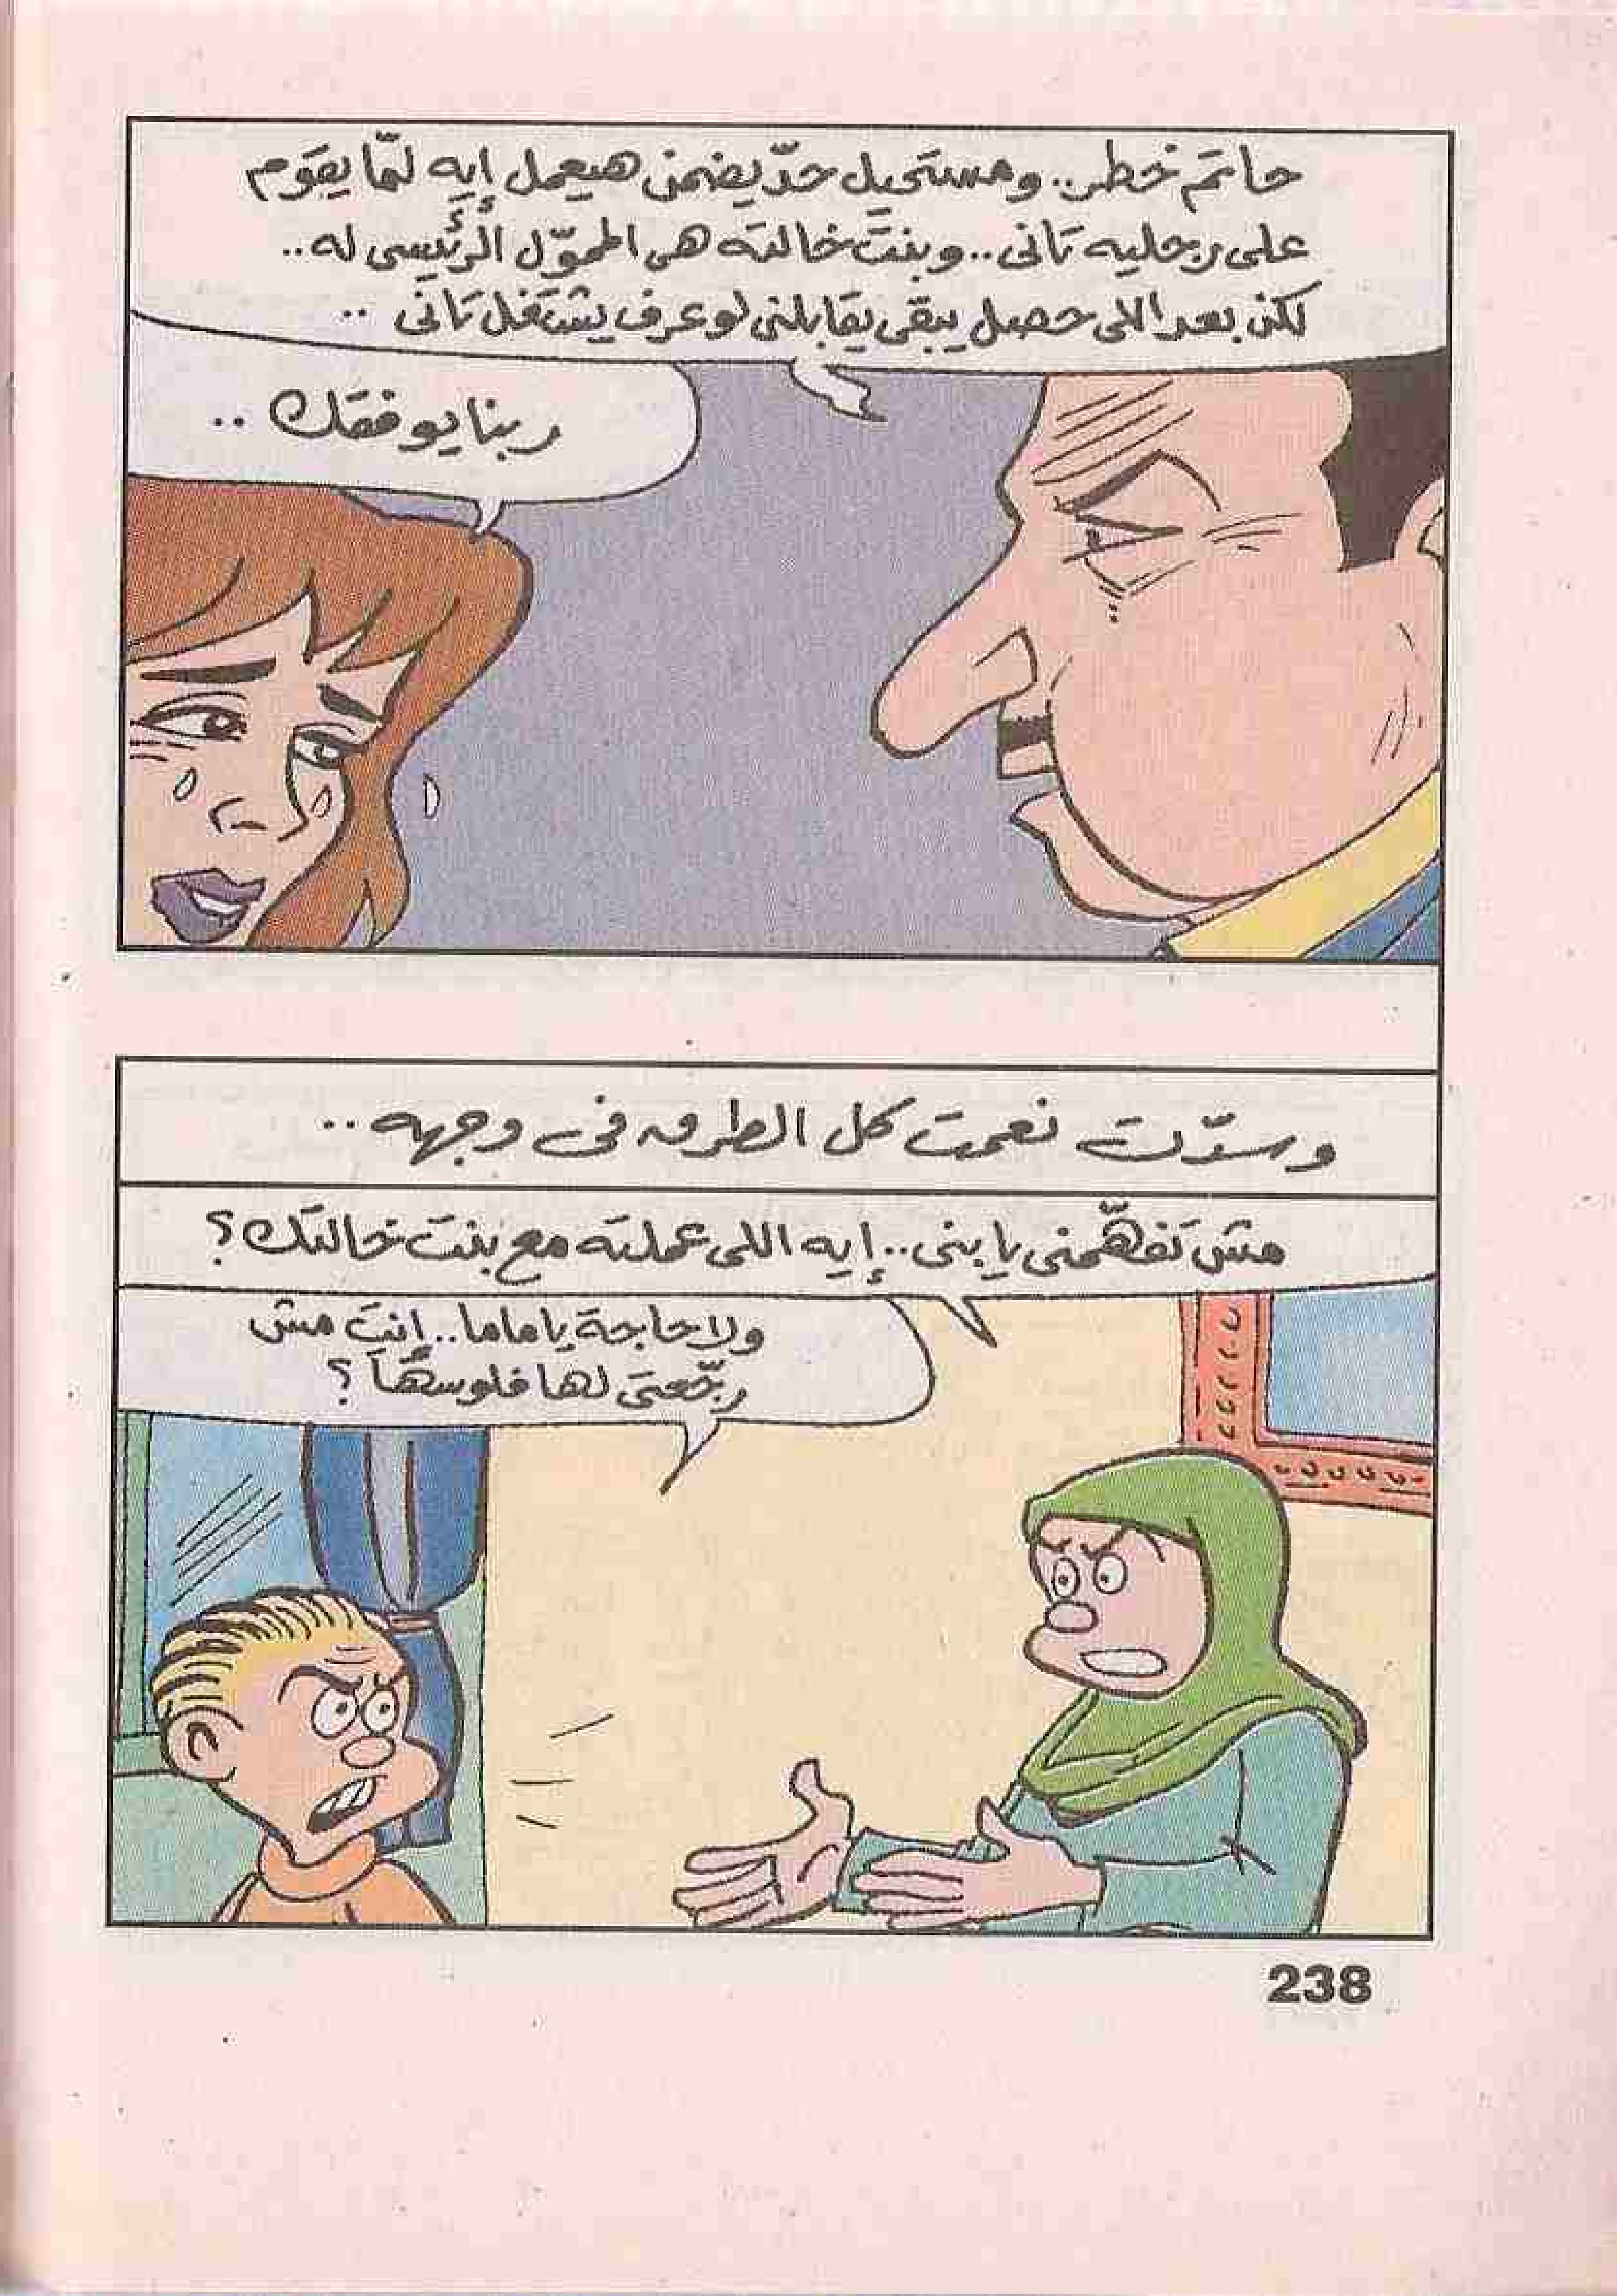 حاتم خطر.. ومستحيل حدّ يضمن هيعمل إيه لمّا يقوم
على رجليه تانى.. وبنت خالته هى المموّل الرئيسى له..
لكن بعد اللى حصل يبقى يقابلنى لو عرف يشتغل تانى ..
ربنا يوفقك ..
وسدّت نعمت كل الطرق فى وجهه ..
مش تفهّمنى يا بنى.. إيه اللى عملته مع بنت خالتك؟
ولا حاجة يا ماما.. إنتِ مش
رجّعتى لها فلوسها ؟
238